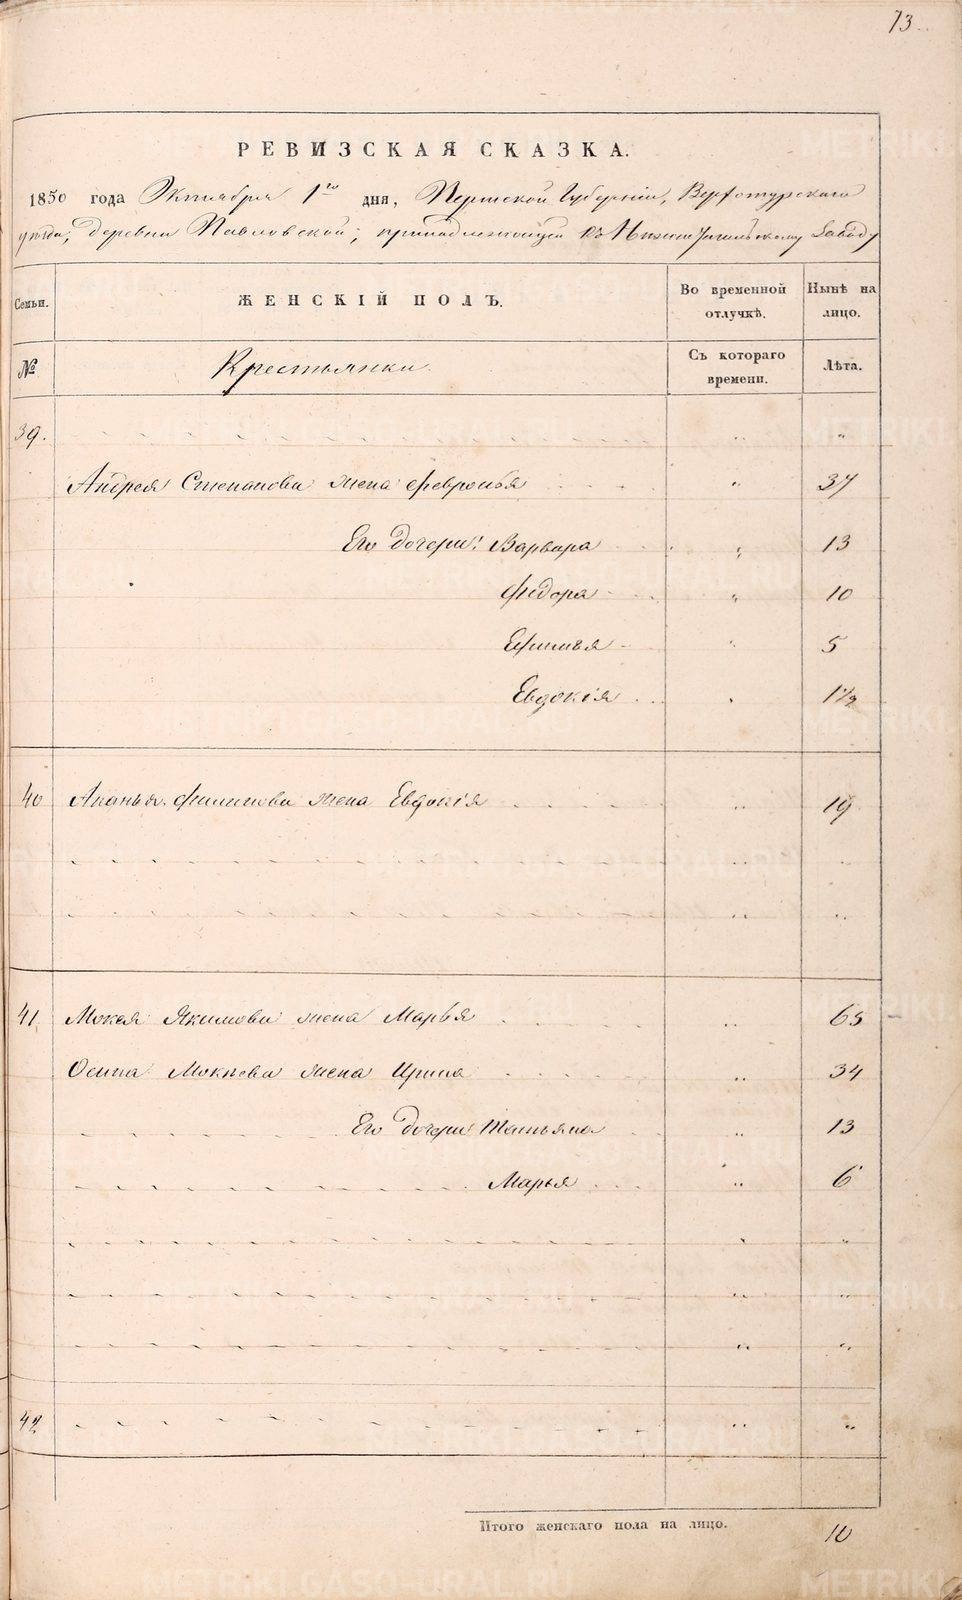 73.
РЕВИЗСКАЯ СКАЗКА.
1850 года Октября 1го дня, Пермской Губерніи, Верхотурскаго
уѣзда, деревни Павловской, принадлежащей къ Нижнетагильскому Заводу
Семьи. ЖЕНСКІЙ ПОЛЪ. Во временной отлучкѣ. Нынѣ на лицо.
№ Крестьянки. Съ котораго времени. Лѣта.
39. " "
Андрея Степанова жена Февронья " 37
Его дочери: Варвара " 13
Федора " 10
Ефимья " 5
Евдокія " 1½
40 Ананья Филипова жена Евдокія " 19
" "
" "
41 Мокея Якимова жена Марья " 65
Осипа Мокѣева жена Ирина " 34
Его дочери: Татьяна " 13
Марья " 6
" "
" "
" "
42 " "
Итого женскаго пола на лицо. 10
METRIKI.GASO-URAL.RU